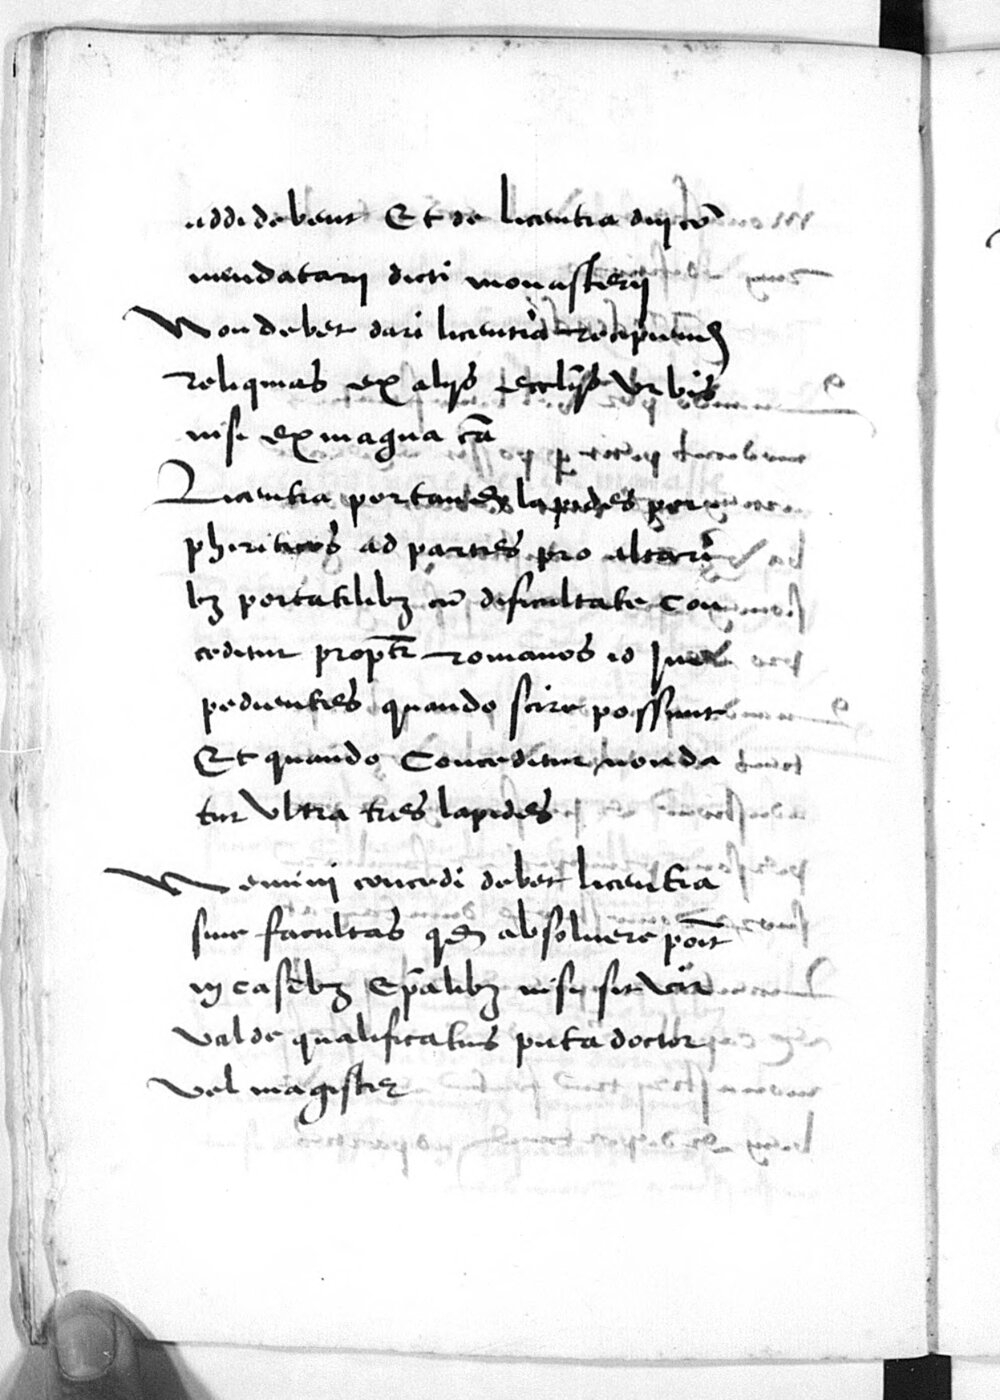 addi debent Et de licentia dnj cō
mendatarij dicti monasterij
Non debet dari licentia recipiendj
reliquias ex alijs ecclijs Vrbis
nisi ex magna cā
Licentia portandj lapides por
phiriticos ad partes pro altari
bȝ portatilibȝ cū dificultate Con
ceditur propt̄ romanos id Im
pedientes quando scire possunt
Et quando Conceditur non da
tur Vltra tres lapides
Nemini concedi debet licentia
siue facultas qd absoluere poīt
in casibȝ Ep̄alibȝ nisi sit vir
valde qualificatus puta doctor
vel magister